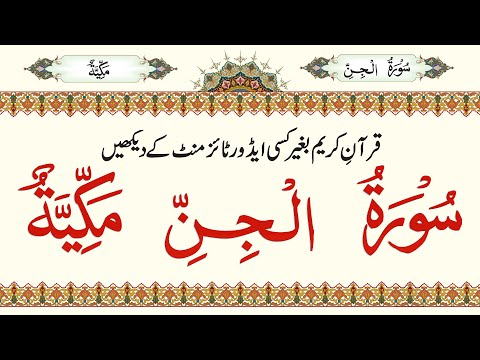 سُوْرَةُ الْجِنِّ
مَكِّيَّةٌ
قرآنِ کریم بغیر کسی ایڈورٹائزمنٹ کے دیکھیں
سُوْرَةُ الْجِنِّ مَكِّيَّةٌ